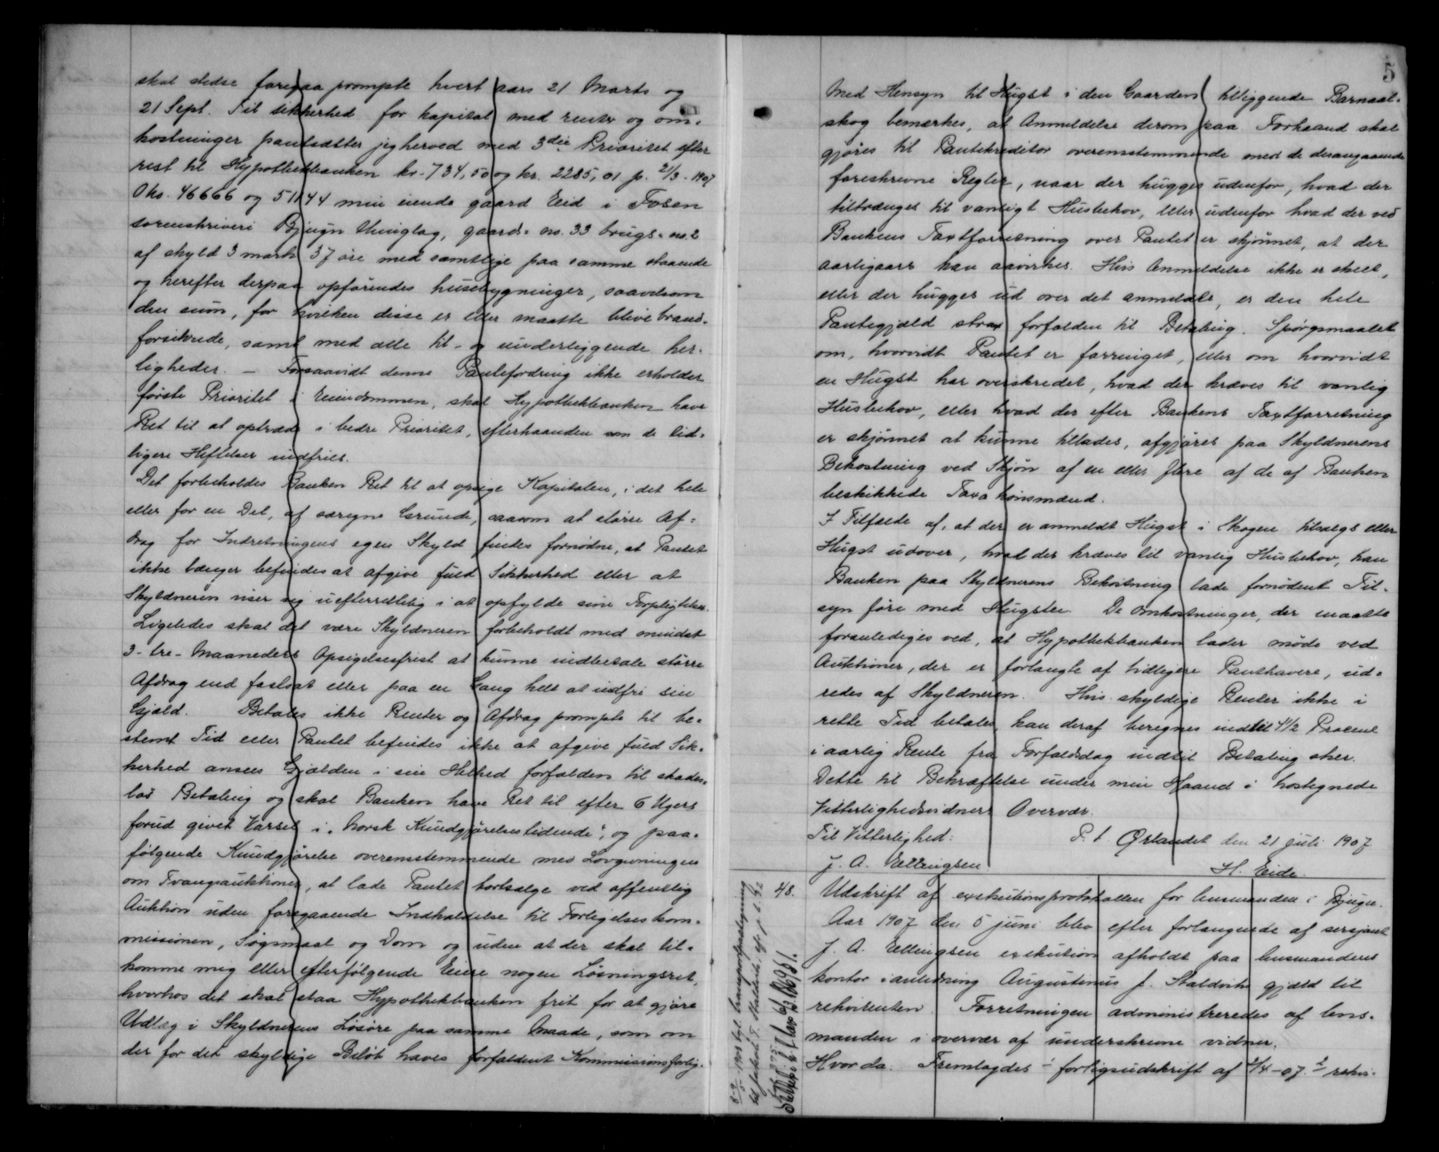 skal stedse foregaa prompte hvert aars 21 Marts og
21 Sept. Til sikkerhed for kapital med renter og om-
kostninger pantsætter jeg herved med 3die Prioritet efter
rest til Hypothekbanken kr. 734,50 og kr. 2285,01 p. 21/3-1907
Obs. 46666 og 51144 min eiende gaard Eid i Fosen
sorenskriveri Bjugn thinglag, gaards-no. 33 brugs-no. 2
af skyld 3 mark 37 øre med samtlige paa samme staaende
og herefter derpaa opførendes husebygninger, saavelsom
den sum, for hvilken disse er eller maatte blive brand-
forsikrede, samt med alle til- og underliggende her-
ligheder. – Forsaavidt denne Pantefordring ikke erholder
første Prioritet i eiendommen, skal Hypothekbanken have
Ret til at optræde i bedre Prioritet, efterhaanden som de tid-
ligere Heftelser indfries.
Det forbeholdes Banken Ret til at opsige Kapitalen, i det hele
eller for en Del, af særegne Grunde, saasom at større Af-
drag for Indretningens egen Skyld findes fornødne, at Pantet
ikke længer befindes at afgive fuld Sikkerhed eller at
Skyldneren viser sig uefterrettelig i at opfylde sine Forpligtelser.
Ligeledes skal det være Skyldneren forbeholdt med mindst
3-tre-Maaneders Opsigelsesfrist at kunne indbetale større
Afdrag end fastsat eller paa en Gang helt at indfri sin
Gjæld. Betales ikke Renter og Afdrag prompte til be-
stemt Tid eller Pantet befindes ikke at afgive fuld Sik-
kerhed ansees Gjælden i sin Helhed forfalden til skades-
løs Betaling og skal Banken have Ret til efter 6 Ugers
forud givet Varsel i "Norsk Kundgjørelsestidende", og paa-
følgende Kundgjørelse overensstemmende med Lovgivningen
om Tvangsauktioner, at lade Pantet bortsælge ved offentlig
Auktion uden foregaaende Indkaldelse til Forligelseskom-
missionen, Søgsmaal og Dom og uden at der skal til-
komme mig eller efterfølgende Eiere nogen Løsningsret,
hvorhos det skal staa Hypothekbanken frit for at gjøre
Udlæg i Skyldnerens Løsøre paa samme Maade, som om
der for det skyldige Beløb haves forfaldent Kommissionsforlig.
5
Med Hensyn til Hugst i den Gaarden tilliggende Barnaal-
skog bemærkes, at Anmeldelse derom paa Forhaand skal
gjøres til Pantekreditor overensstemmende med de desangaaende
foreskrevne Regler, naar der hugges udenfor, hvad der
tiltrænges til vanligt Husbehov, eller udenfor hvad der ved
Bankens Taxtforretning over Pantet er skjønnet, at der
aarligaars kan avirkes. Hvis Anmeldelse ikke er skeet,
eller der hugges ud over det anmeldte, er den hele
Pantegjæld strax forfalden til Betaling. Spørgsmaalet
om, hvorvidt Pantet er forringet, eller om hvorvidt
en Hugst har overskredet, hvad der kræves til vanlig
Husbehov, eller hvad der efter Bankens Taxtforretning
er skjønnet at kunne tillades, afgjøres paa Skyldnerens
Bekostning ved Skjøn af en eller flere af de af Banken
beskikkede Taxationsmænd.
I Tilfælde af, at der er anmeldt Hugst i Skogen tilsalgs eller
Hugst udover, hvad der kræves til vanlig Husbehov, kan
Banken paa Skyldnerens Bekostning lade fornødent Til-
syn føre med Hugsten. De Omkostninger, der maatte
foranlediges ved, at Hypothekbanken lader møde ved
Auktioner, der er forlangte af tidligere Panthavere, ud-
redes af Skyldneren. Hvis skyldige Renter ikke i
rette Tid betales, kan deraf beregnes indtil 4½ Procent
i aarlig Rente fra Forfaldsdag indtil Betaling sker.
Dette til Bekræftelse under min Haand i hostegnede
Vitterlighedsvidners Overvær.
Til Vitterlighed: P. t. Ørlandet den 21 juli 1907
J. A. Ellingsen H. Eide.
48. Udskrift af exekutionsprotokollen for lensmanden i Bjugn.
Aar 1907 den 5 juni blev efter forlangende af sersjant
J. A. Ellingsen exekution afholdt paa lensmandens
kontor i anledning Augustinus J. Staldvik gjæld til
rekvirenten. Forretningen administreredes af lens-
manden i overvær af underskrevne vidner.
Hvor da. Fremlagdes 1 forligsudskrift af 2/4-07. 2 rekvi-